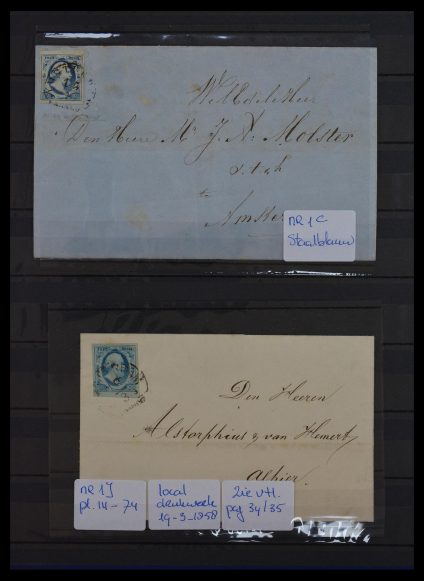 Den Heere Mr J. A. Molster
Amster
NR 1 C
Staalblauw
Den Heeren
Alstorphius & van Hemert
Alhier
NR 1J
pl. 14 - 74
local
drukwerk
19-3-1858
Zie v.H.
pag 34/35